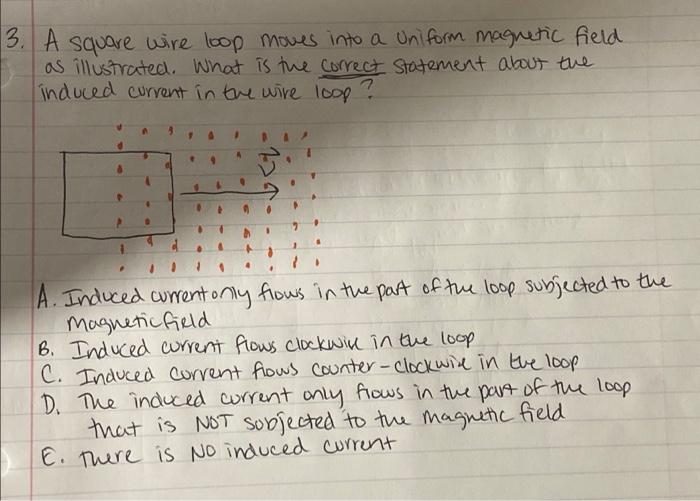 3. A square wire loop moves into a uniform magnetic field
as illustrated. What is the correct statement about the
induced current in the wire loop?
V
A. Induced current only flows in the part of the loop subjected to the
Magnetic field
B. Induced current flows clockwise in the loop
C. Induced current flows counter-clockwise in the loop
D. The induced current only flows in the part of the loop
that is NOT subjected to the magnetic field
E. There is NO induced current